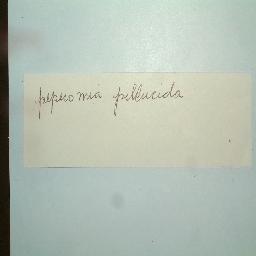 peperomia pellucida